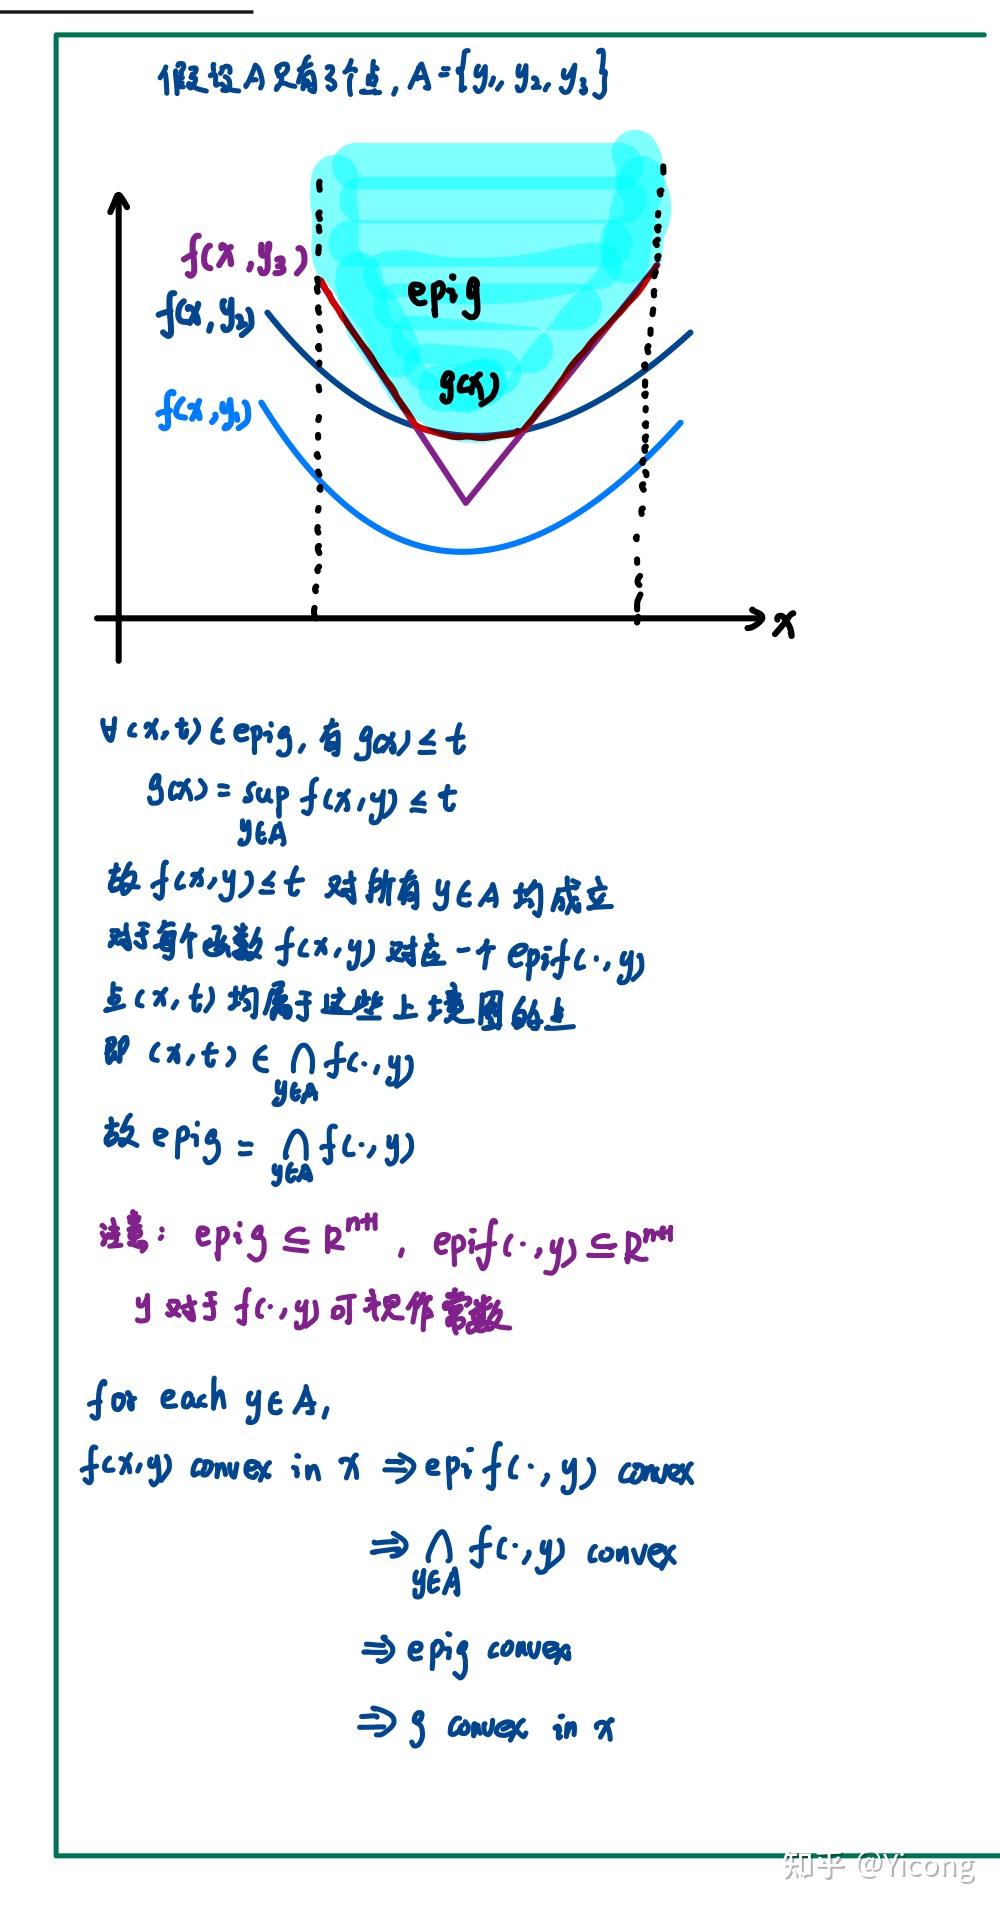 假设A只有3个点, A={y₁, y₂, y₃}
f(x,y₃)
epi g
f(x,y₂)
g(x)
f(x,y₁)
x
∀(x,t)∈epi g, 有 g(x)≤t
g(x) = sup f(x,y) ≤ t
y∈A
故 f(x,y)≤t 对所有 y∈A 均成立
对于每个函数 f(x,y) 对应一个 epi f(·,y)
点(x,t)均属于这些上境图的点
即 (x,t) ∈ ∩ f(·,y)
y∈A
故 epi g = ∩ f(·,y)
y∈A
注意: epi g ⊆ R^{n+1}, epi f(·,y) ⊆ R^{n+1}
y 对于 f(·,y) 可视作常数
for each y∈A,
f(x,y) convex in x ⇒ epi f(·,y) convex
⇒ ∩ f(·,y) convex
y∈A
⇒ epi g convex
⇒ g convex in x
知乎 @Yicong